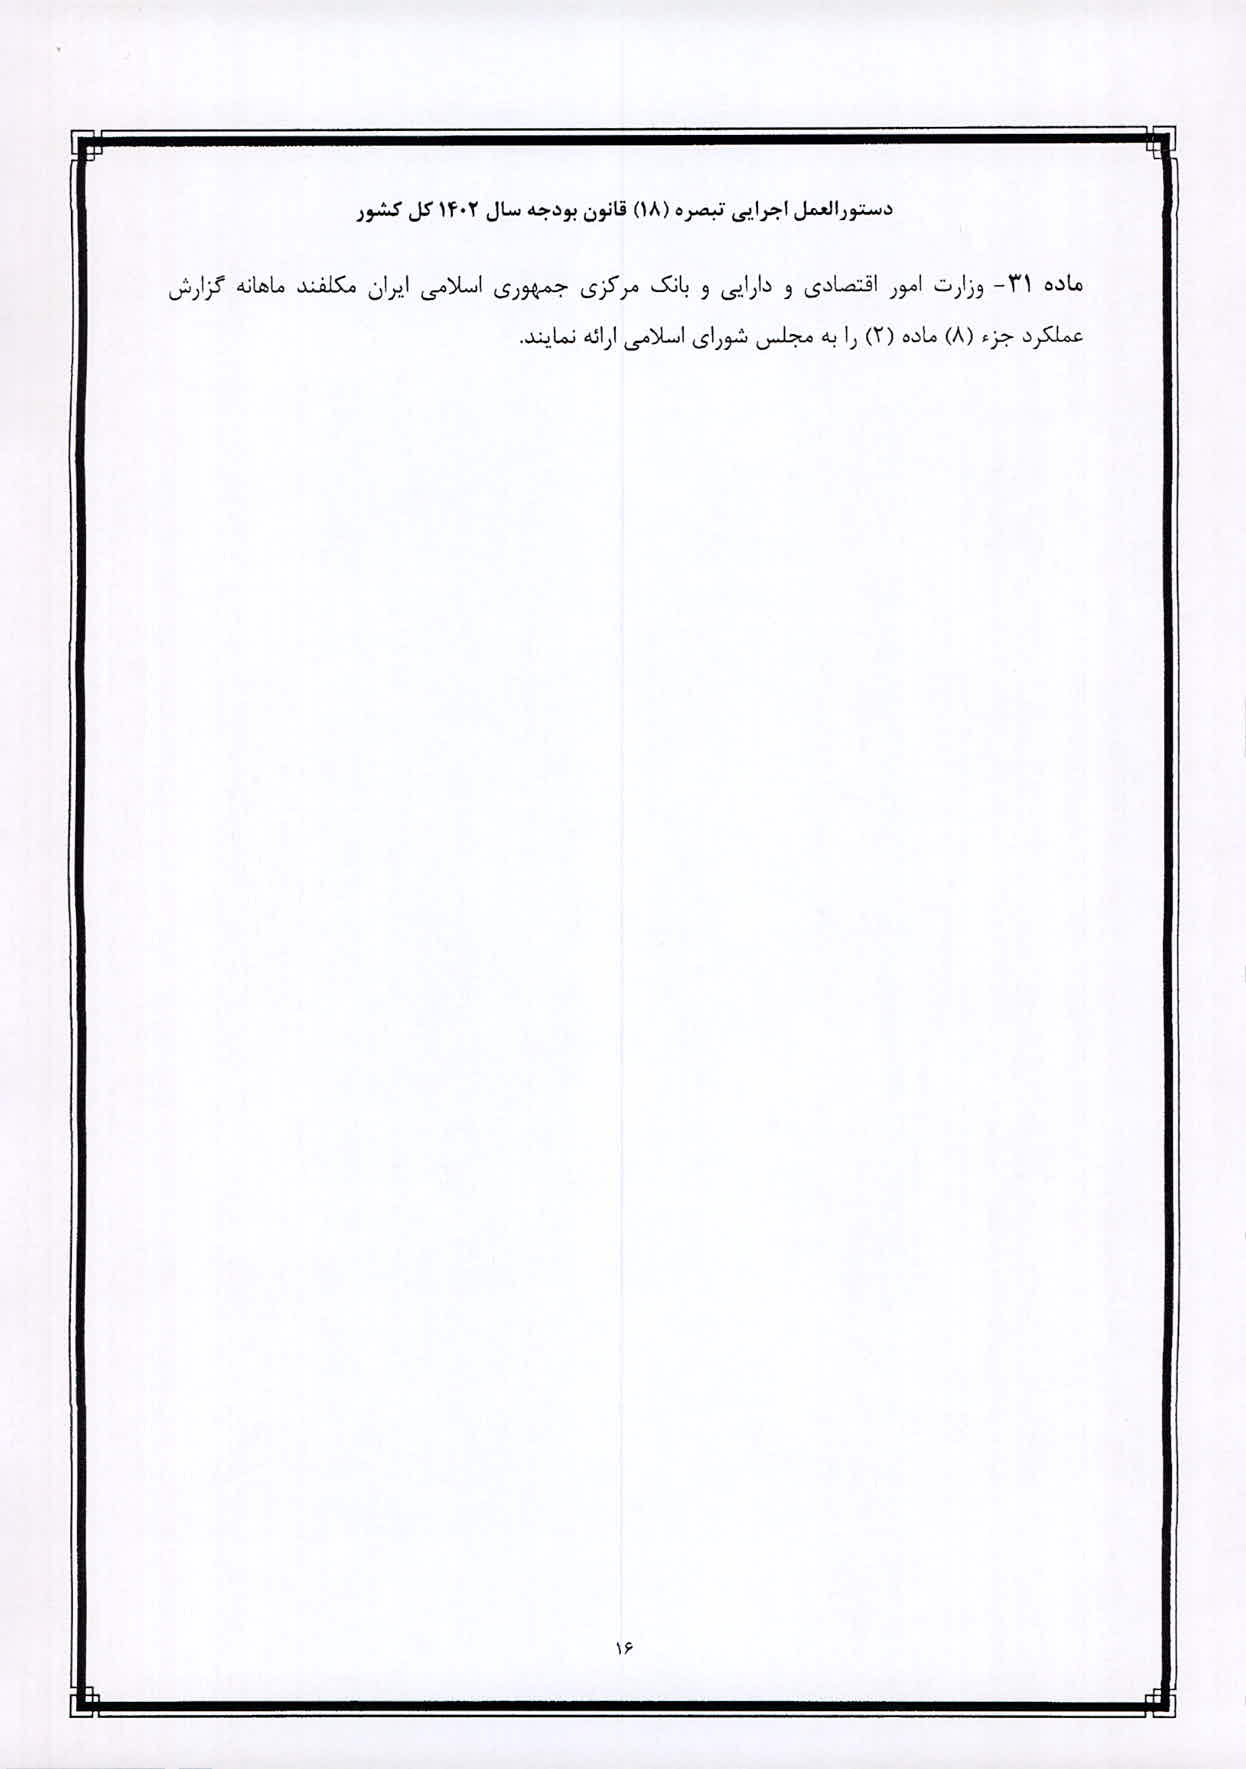 دستورالعمل اجرایی تبصره (۱۸) قانون بودجه سال ۱۴۰۲ کل کشور
ماده ۳۱- وزارت امور اقتصادی و دارایی و بانک مرکزی جمهوری اسلامی ایران مکلفند ماهانه گزارش
عملکرد جزء (۸) ماده (۲) را به مجلس شورای اسلامی ارائه نمایند.
۱۶